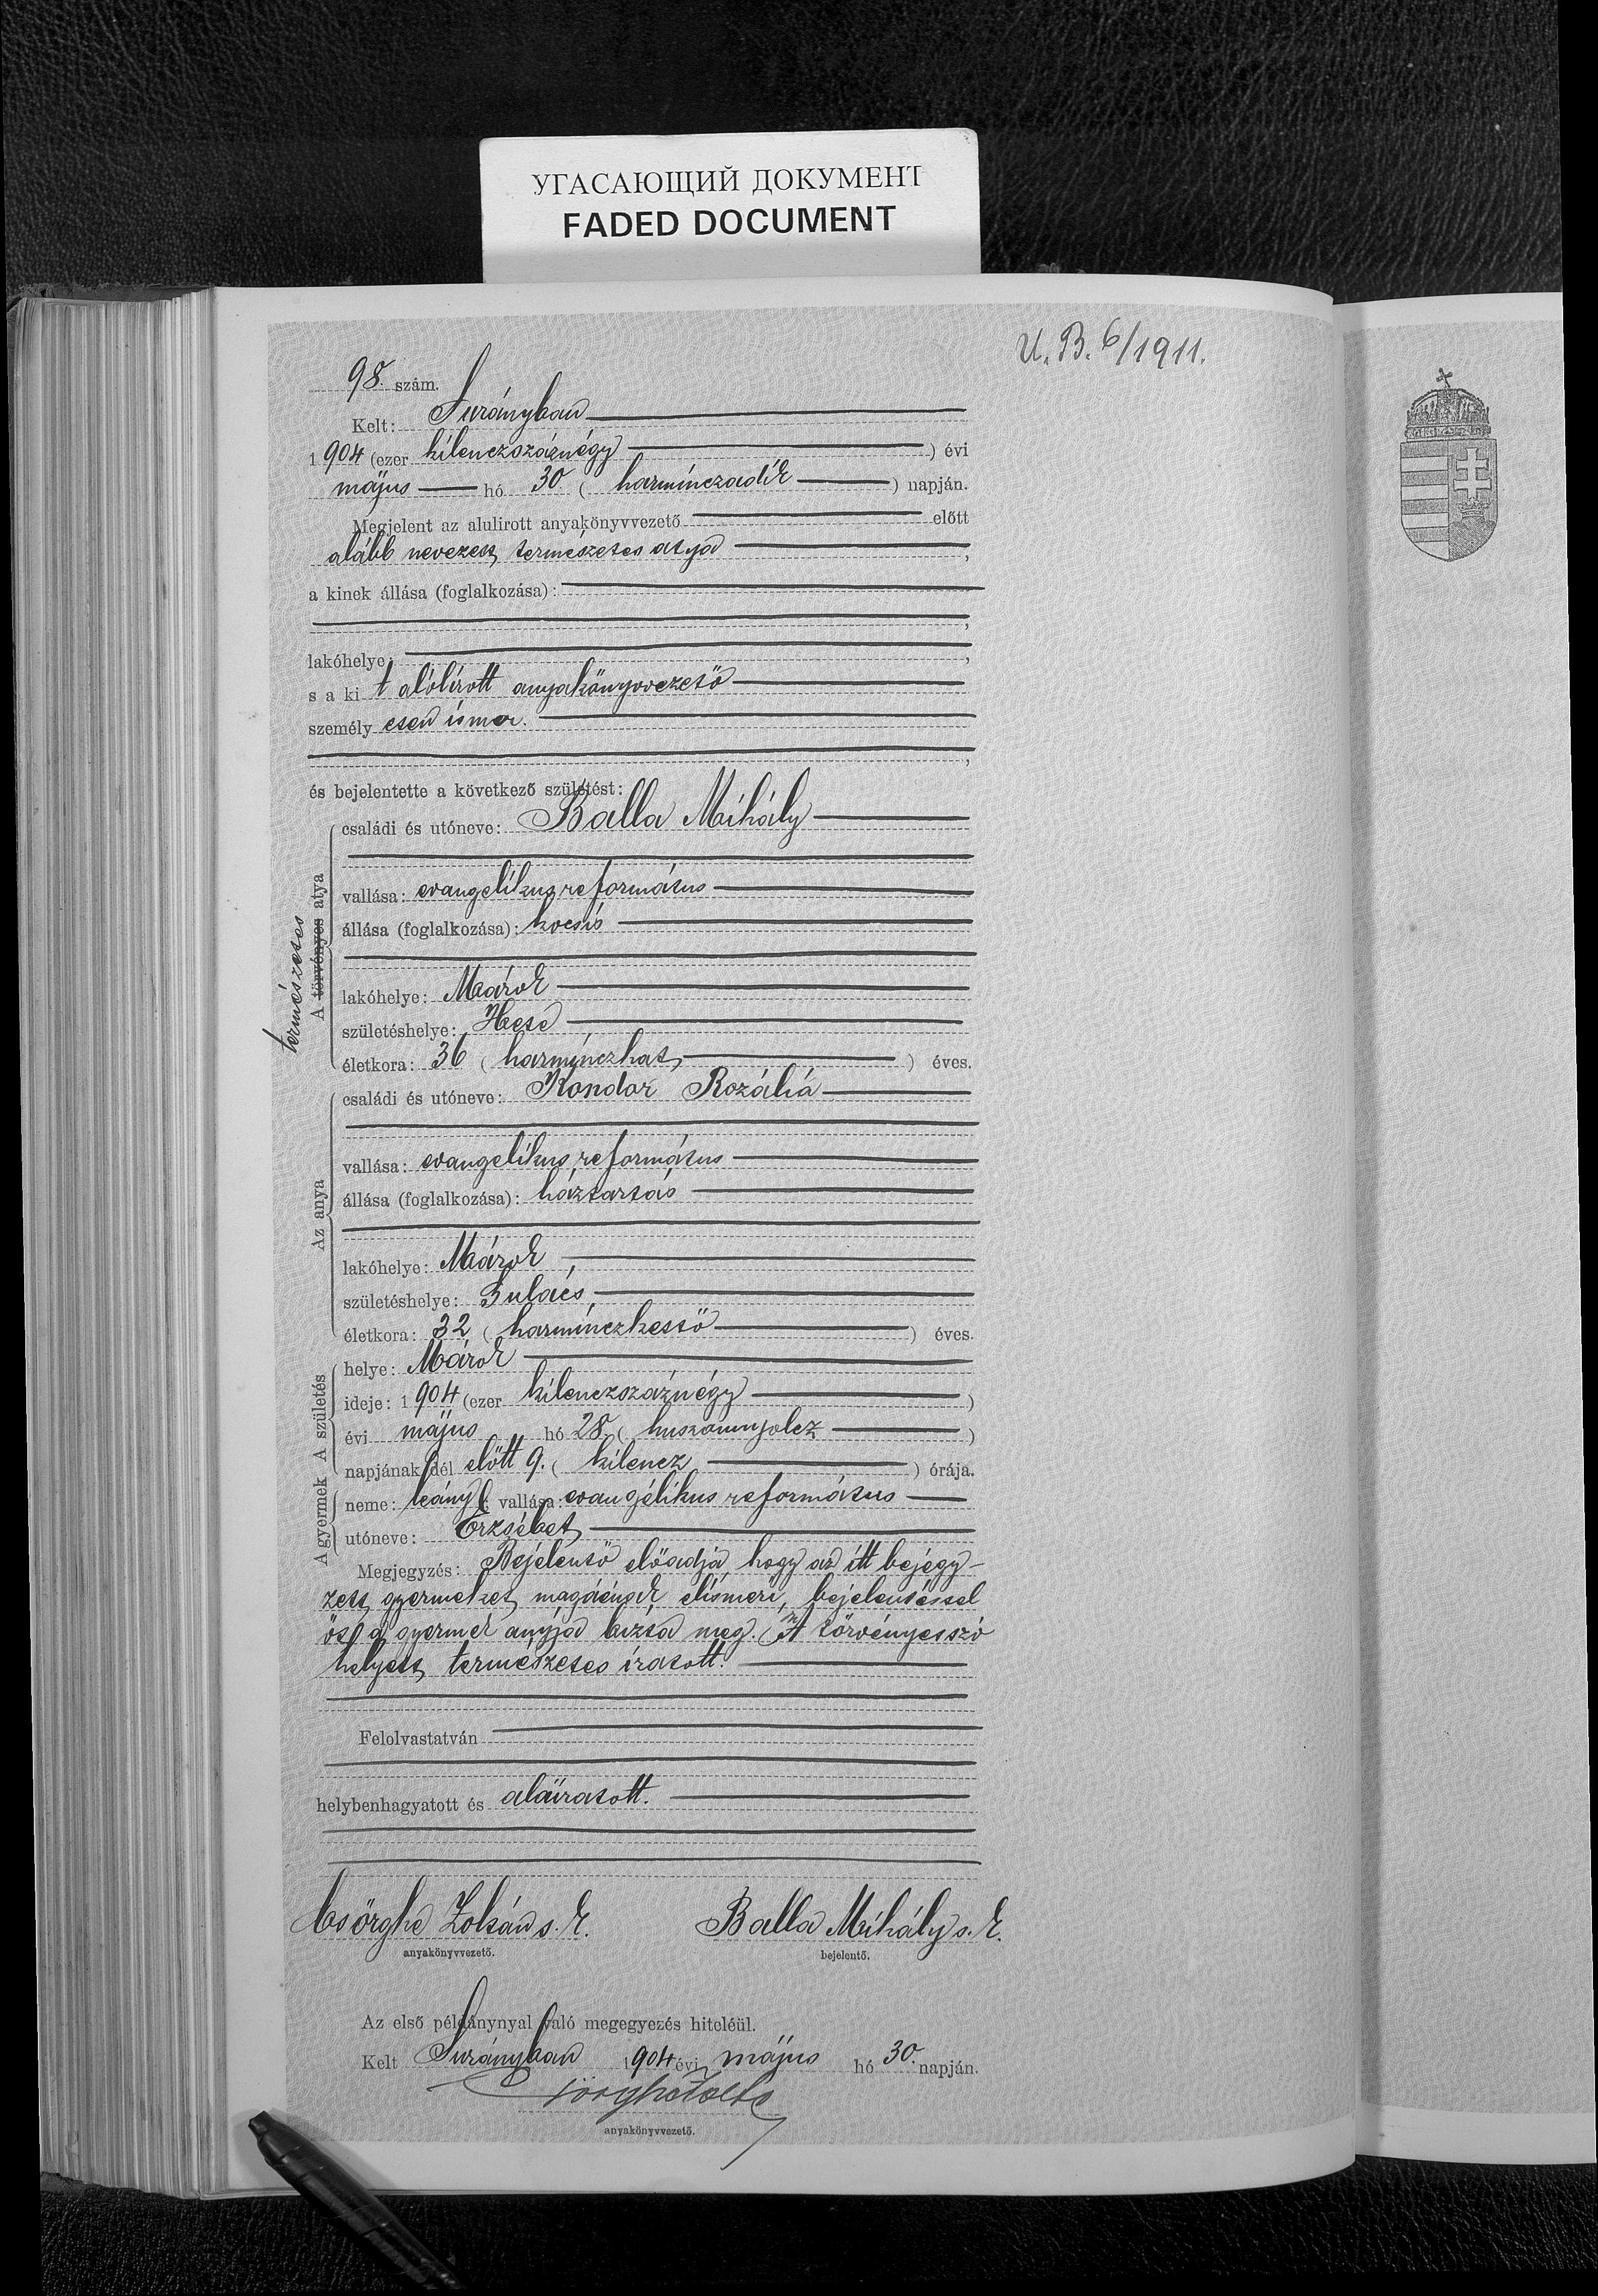 УГАСАЮЩИЙ ДОКУМЕНТ
FADED DOCUMENT
U. B. 6/1911.
98. szám.
Kelt: Surányban
1904 (ezer kilenczszáznégy) évi
május hó 30 (harminczadik) napján.
Megjelent az alulirott anyakönyvvezető előtt
alább nevezett természetes atya,
a kinek állása (foglalkozása):
,
lakóhelye ,
s a kit alólírott anyakönyvvezető
személyesen ismer.
,
és bejelentette a következő születést:
természetes
A törvényes atya
családi és utóneve: Balla Mihály
vallása: evangelikus református
állása (foglalkozása): kocsis
lakóhelye: Márok
születéshelye: Hete
életkora: 36 (harminczhat) éves.
Az anya
családi és utóneve: Kondor Rozália
vallása: evangelikus református
állása (foglalkozása): háztartás
lakóhelye: Márok,
születéshelye: Gulács,
életkora: 32 (harminczkettő) éves.
A születés
helye: Márok
ideje: 1904 (ezer kilenczszáznégy)
évi május hó 28 (huszonnyolcz)
napjának dél előtt 9. (kilencz) órája.
A gyermek
neme: leány; vallása: evangélikus református
utóneve: Erzsébet
Megjegyzés: Bejelentő előadja, hogy az itt bejegy-
zett gyermeket magáénak elismeri, bejelentéssel
őt a gyermek anyja bizta meg. A törvényes szó
helyett természetes íratott.
Felolvastatván
helybenhagyatott és aláíratott.
Csörghe Zoltán s. k. Balla Mihály s. k.
anyakönyvvezető. bejelentő.
Az első példánynyal való megegyezés hiteléül.
Kelt Surányban 1904 évi május hó 30. napján.
anyakönyvvezető.